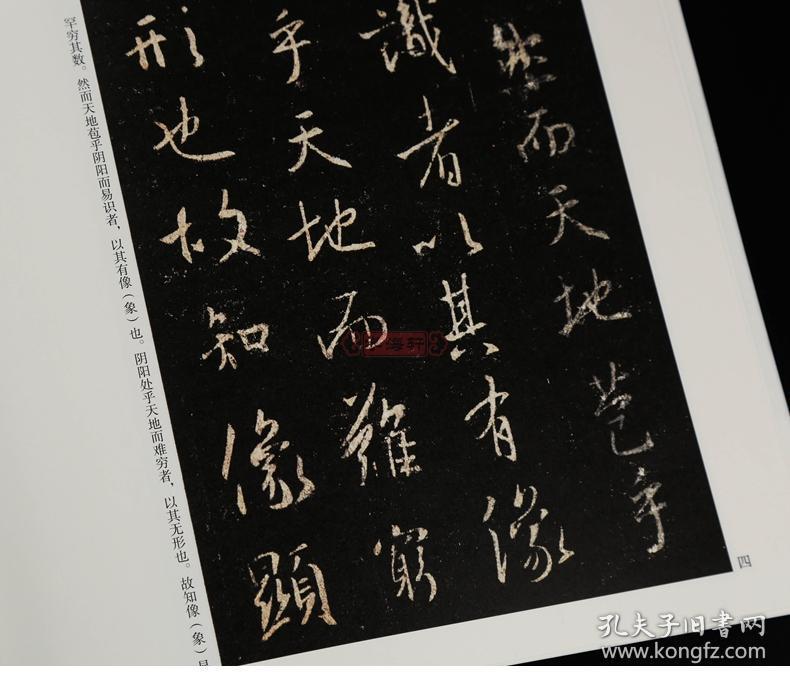 然而天地苞乎
識者以其有像
乎天地而難窮
形也故知像顯
罕穷其数。然而天地苞乎阴阳而易识者，以其有像（象）也。阴阳处乎天地而难穷者，以其无形也。故知像（象）
四
海轩
孔夫子旧书网
www.kongfz.com